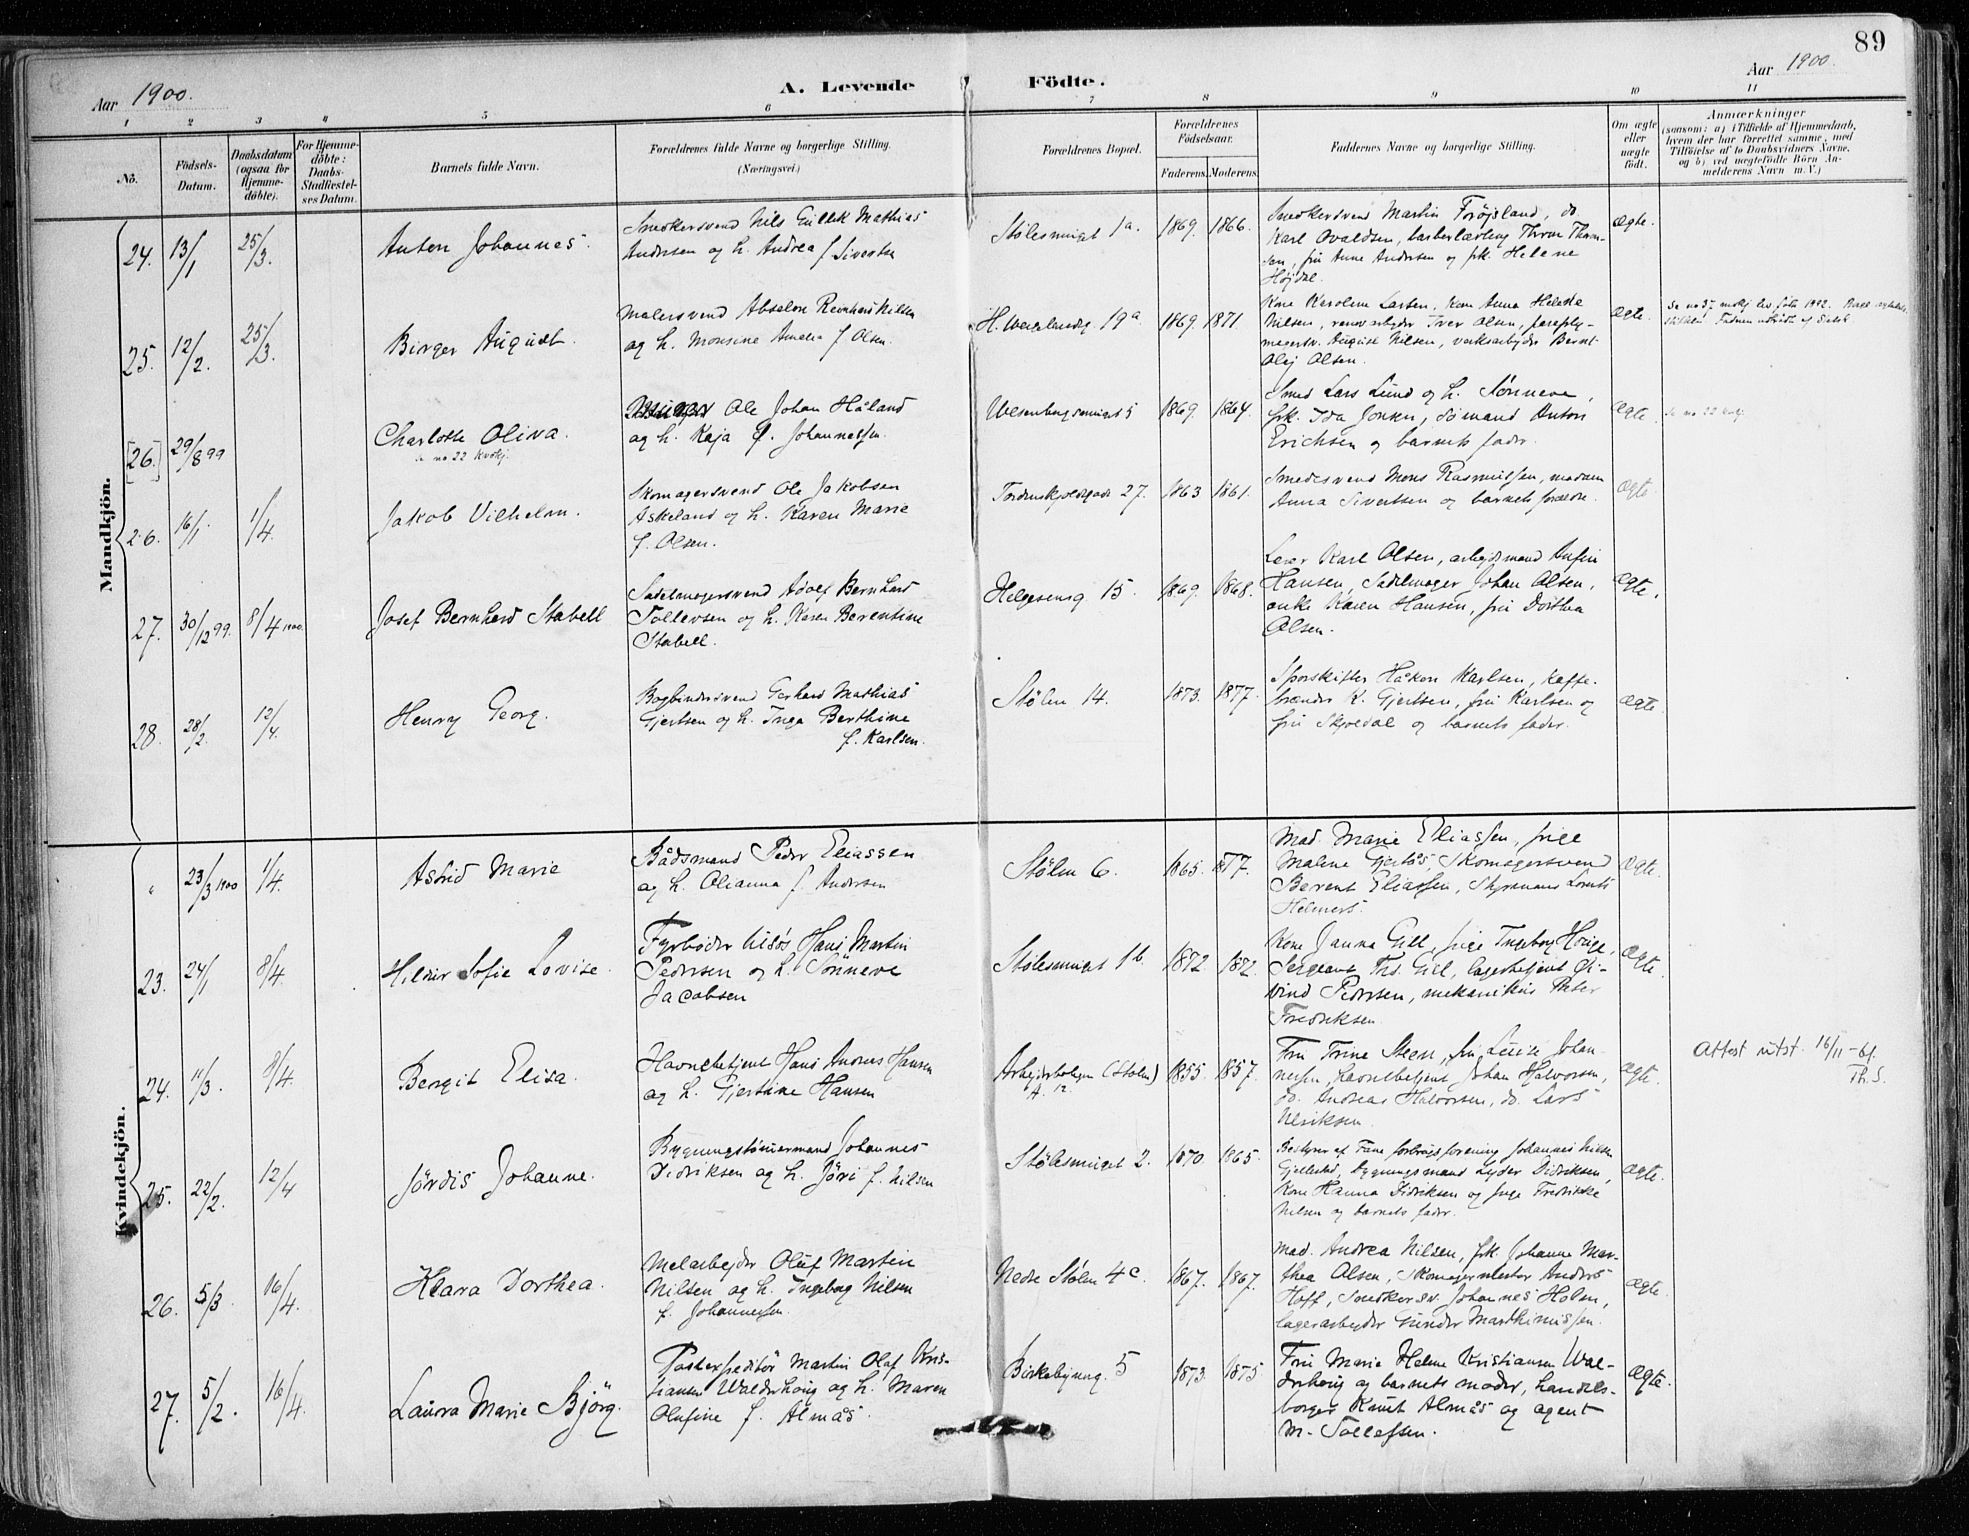 89
Aar 1900.
A. Levende Födte.
Aar 1900.
1 2 3 4 5 6 7 8 9 10 11
No.
Födsels-Datum.
Daabsdatum (ogsaa for Hjemmedöbte).
For Hjemmedöbte: Daabs-Stadfæstelses Datum.
Barnets fulde Navn.
Forældrenes fulde Navne og borgerlige Stilling.
(Næringsvei.)
Forældrenes Bopæl.
Forældrenes Födselsaar.
Faderens. Moderens.
Faddernes Navne og borgerlige Stilling.
Om ægte eller uægte födt.
Anmærkninger
(saasom: a) i Tilfælde af Hjemmedaab, hvem der har forrettet samme, med Tilföielse af to Daabsvidners Navne, og b) ved uægtefödte Börn Anmelderens Navn m.V.)
Mandkjön.
24. 13/1 25/3. Anton Johannes.
Snedkersvend Nils Gullik Mathias
Andersen og h. Andrea f. Sivertsen
Stølesmuget 1a. 1869. 1866.
Snedkersvend Martin Forøjsland, do.
Karl Osvaldsen, barberlærling Thron Thron-
sen, fru Anne Andersen og frk. Helene
Højdal.
Ægte.
25. 12/2. 25/3. Birger August.
Malersvend Absalon Reinhard Nilsen
og h. Monsine Amalia f. Olsen.
19a 1869. 1871.
Kone Karoline Larsen, Kone Anna Helene
Nilsen, renovarbejder Iver Olsen, paraply-
magersv. August Nilsen, verksarbejder Bernt
Olaj Olsen.
Ægte.
[26.] 29/8 99 Charlotte Oliva.
se no 22 kvkj.
Ole Johan Håland
og h. Kaja f. Johannessen.
Wesenbergsmuget 5 1869. 1864.
Smed Lars Lund og h. Sønneva,
frk. Ida Jonsen, sømand Anton
Erichsen og barnets fader.
Ægte.
se no 22 kvkj.
26. 16/1. 1/4. Jakob Vilhelm.
Skomagersvend Ole Jakobsen
Askeland og h. Karen Marie
f. Olsen.
Tordenskjoldsgade 27. 1863 1861.
Smedesvend Mons Rasmussen, madam
Anna Sivertsen og barnets forældre.
Ægte.
27. 30/12 99. 8/4 1900. Josef Bernhard Stabell
Sadelmagersvend Adolf Bernhard
Tollevsen og h. Karen Berentine
Stabell.
Helgesensg 15. 1869. 1868.
Karl Olsen, arbejdsmand Anfin
Hansen, Sadelmager Johan Olsen,
enke Karen Hansen, fru Dorthea
Olsen.
Ægte.
28. 28/2. 12/4. Henry Georg.
Bogbindersvend Gerhard Mathias
Gjertsen og h. Inga Berthine
f. Karlsen.
Stølen 14. 1873. 1877.
Sporskifter Håkon Karlsen, kaffe-
brænder K. Gjertsen, fru Karlsen og
fru Skjoldal og barnets fader.
Ægte.
Kvindekjön.
" 23/3 1900 1/4. Astrid Marie
Bådsmand Peder Eliassen
og h. Olianna f. Andersen
Stølen 6. 1865. 1877.
Mad. Marie Eliassen, pige
Malene Gjertsø, Skomagersvend
Berent Eliassen, Styrmand Lorents
Helmers.
Ægte.
23. 24/1 8/4. Hildur Sofie Lovise.
Fyrbøder tilsøs Hans Martin
Pedersen og h. Sønneva
Jacobsen
Stølesmuget 1b. 1872. 1872.
Kone Janna Gill, pige Ingeborg Hauge,
Sergeant Ths. Gill, lagerbetjent Øi-
vind Pedersen, mekanikus Peter
Fredriksen
Ægte.
24. 11/3. 8/4. Bergit Elisa.
Havnebetjent Hans Andreas Hansen
og h. Gjertine Hansen
Arbejderboligen (Stølen)
A. 12. 1855. 1857.
Fru Trine Steen, fru Luise Johan-
nesen, havnebetjent Johan Halvorsen,
do. Andreas Halvorsen, do. Lars
Ulriksen.
Ægte.
Attest utst. 16/11-61.
Th. S.
25. 22/2. 12/4 Jørdis Johanne.
Bygningstømmermand Johannes
Didriksen og h. Jöri f. Nilsen
Stølesmuget 2. 1870. 1865.
Bestyrer af Fane forbrugsforening Johannes Nilsen
Gjellestad, bygningsmand Lyder Didriksen,
Kone Hanna Didriksen og pige Fredrikke
Nilsen og barnets fader.
Ægte.
26. 5/3. 16/4. Klara Dorthea.
Melarbejder Oluf Martin
Nilsen og h. Ingeborg Nilsen
f. Johannesen.
Nedre Stølen 4c. 1867. 1867.
Mad. Andrea Nilsen, frk. Johanne Mar-
thea Olsen, Skomagermester Anders
Hoff, Snedkersv. Johannes Holm,
lagerarbejder Gunder Marthinussen.
Ægte.
27. 5/2. 16/4. Laura Marie Bjørg.
Postexpeditør Martin Olaf Kris-
tiansen Walderhaug og h. Maren
Olufine f. Almås.
Birkebeinerg. 5 1873. 1875.
Fru Marie Helene Kristiansen Wal-
derhaug og barnets moder, handels-
borger Knut Almås og agent
M. Tollefsen.
Ægte.